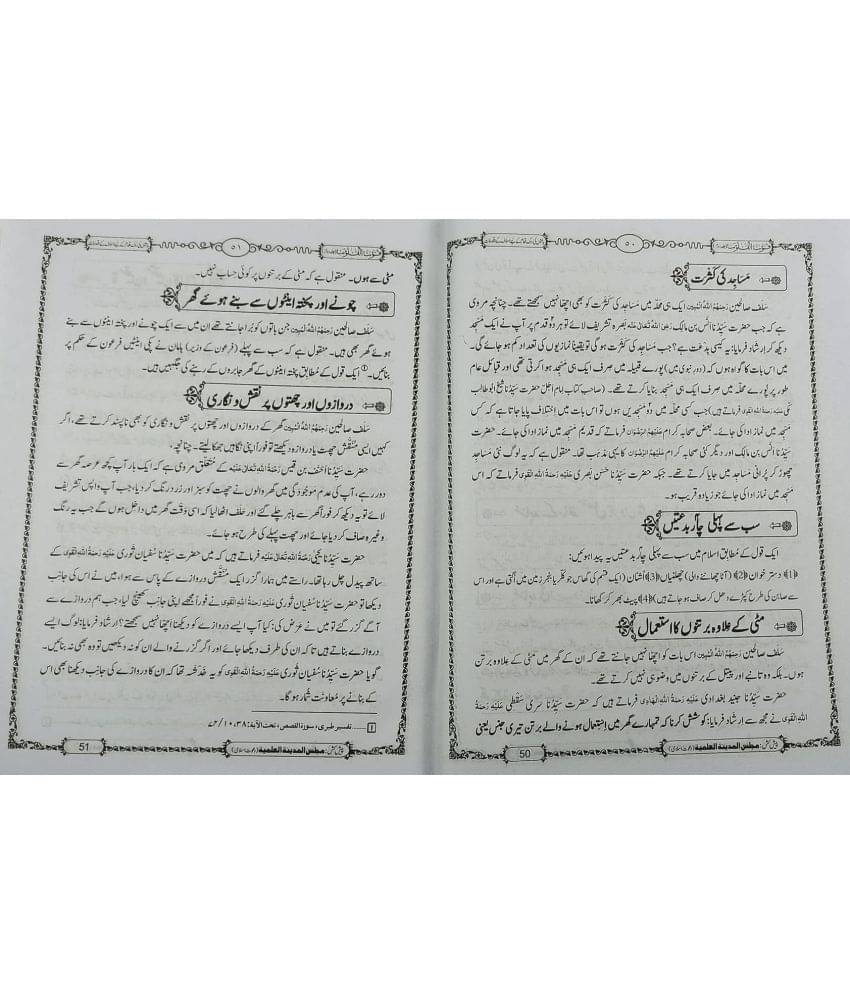 ۵۰
مَسَاجِد کی کثرت
سَلَف صالحین رَحِمَہُمُ اللّٰہُ الْمُبِیْن ایک ہی محلہ میں مساجد کی کثرت کو بھی اچھا نہیں سمجھتے تھے۔ چنانچہ مروی
ہے کہ جب حضرت سیِّدُنا انَس بن مالِک رَضِیَ اللّٰہُ تَعَالٰی عَنْہ بصرہ تشریف لائے تو ہر دو قدم پر آپ نے ایک مسجد
دیکھ کر ارشاد فرمایا: یہ کیسی بِدعَت ہے؟ جب مساجد کی کثرت ہو گی تو یقیناً نمازیوں کی تعداد کم ہو جائے گی۔
میں اس بات کا گواہ ہوں کہ (دورِ نبوی میں) پورے قبیلہ میں صرف ایک ہی مسجد ہوا کرتی تھی اور قبائل عام
طور پر پورے محلّہ میں صرف ایک ہی مسجد بنایا کرتے تھے۔ (صاحبِ کتاب امامِ اجلّ حضرت سیِّدُنا شیخ ابو طالب
مکی عَلَیْہِ رَحمَۃُ اللّٰہِ الْقَوِی فرماتے ہیں) جب کسی محلہ میں دو مسجدیں ہوں تو اس بات میں اختلاف پایا جاتا ہے کہ کس
مسجد میں نماز ادا کی جائے۔ بعض صحابہ کرام عَلَیْہِمُ الرِّضْوَان فرماتے کہ قدیم مسجد میں نماز ادا کی جائے۔ حضرت
سیِّدُنا انَس بن مالِک اور دیگر کئی صحابہ کرام عَلَیْہِمُ الرِّضْوَان کا یہی مَذہَب تھا۔ منقول ہے کہ یہ لوگ نئی مساجد
چھوڑ کر پرانی مساجد میں جایا کرتے تھے۔ جبکہ حضرت سیِّدُنا حسن بصری عَلَیْہِ رَحمَۃُ اللّٰہِ الْقَوِی فرماتے کہ اس
مسجد میں نماز ادا کی جائے جو زیادہ قریب ہو۔
سب سے پہلی چار بدعتیں
ایک قول کے مُطابِق اسلام میں سب سے پہلی چار بدعتیں یہ پیدا ہوئیں:
﴿1﴾ دستر خوان ﴿2﴾ (آٹا چھاننے والی) چھلنیاں ﴿3﴾ اُشْنان (ایک قسم کی گھاس جو کلّر یا بنجر زمین میں اُگتی ہے اور اس
سے صابن کی طرح کپڑے دھل کر صاف ہو جاتے ہیں) ﴿4﴾ پیٹ بھر کر کھانا۔
مٹی کے علاوہ برتنوں کا استعمال
سَلَف صالحین رَحِمَہُمُ اللّٰہُ الْمُبِیْن اس بات کو اچھا نہیں جانتے تھے کہ ان کے گھر میں مٹی کے علاوہ برتن
ہوں۔ بلکہ وہ تانبے اور پیتل کے برتنوں میں وضو ہی نہیں کرتے تھے۔
حضرت سیِّدُنا جنید بغدادی عَلَیْہِ رَحمَۃُ اللّٰہِ الْہَادِی فرماتے ہیں کہ حضرت سیِّدُنا سری سقَطی عَلَیْہِ رَحمَۃُ
اللّٰہِ الْقَوِی نے مجھ سے ارشاد فرمایا: کوشش کرنا کہ تمہارے گھر میں اِستعمال ہونے والے برتن تیری جنس یعنی
پیش کش: مجلس المدینۃ العلمیۃ (دعوتِ اسلامی)
50
۵۱
مٹی سے ہوں۔ منقول ہے کہ مٹی کے برتنوں پر کوئی حساب نہیں۔
چونے اور پختہ اینٹوں سے بنے ہوئے گھر
سَلَف صالحین رَحِمَہُمُ اللّٰہُ الْمُبِیْن جن باتوں کو بُرا جانتے تھے ان میں سے ایک چونے اور پختہ اینٹوں سے بنے
ہوئے گھر بھی ہیں۔ منقول ہے کہ سب سے پہلے (فرعون کے وزیر) ہامان نے پکی اینٹیں فرعون کے حکم پر
بنائیں۔ ① ایک قول کے مُطابِق پختہ اینٹوں کے گھر جابروں کے رہنے کی جگہیں ہیں۔
دروازوں اور چھتوں پر نقش و نگاری
سَلَف صالحین رَحِمَہُمُ اللّٰہُ الْمُبِیْن گھر کے دروازوں اور چھتوں پر نقش و نگاری کو بھی ناپسند کرتے تھے، اگر
کہیں ایسی مُنَقَّش چھت یا دروازہ دیکھتے تو فوراً اپنی نگاہیں جھکا لیتے۔ چنانچہ،
حضرت سیِّدُنا احنف بن قیس رَحْمَۃُ اللّٰہِ تَعَالٰی عَلَیْہ کے مُتَعَلِّق مروی ہے کہ ایک بار آپ کچھ عرصہ گھر سے
دور رہے، آپ کی عدم موجودگی میں گھر والوں نے چھت کو سبز اور زرد رنگ کر دیا، جب آپ واپس تشریف
لائے تو یہ دیکھ کر فوراً گھر سے باہر چلے گئے اور حلف اٹھا لیا کہ اسی وقت گھر میں داخل ہوں گے جب یہ رنگ
وغیرہ صاف کر دیا جائے اور چھت پہلے کی طرح ہو جائے۔
حضرت سیِّدُنا یحییٰ رَحْمَۃُ اللّٰہِ تَعَالٰی عَلَیْہ فرماتے ہیں کہ میں حضرت سیِّدُنا سُفیان ثوری عَلَیْہِ رَحمَۃُ اللّٰہِ الْقَوِی کے
ساتھ پیدل چل رہا تھا۔ راستے میں ہمارا گزر ایک مُنَقَّش دروازے کے پاس سے ہوا، میں نے اس کی جانب
دیکھا تو حضرت سیِّدُنا سُفیان ثوری عَلَیْہِ رَحمَۃُ اللّٰہِ الْقَوِی نے فوراً مجھے اپنی جانب کھینچ لیا، جب ہم دروازے سے
آگے گزر گئے تو میں نے عرض کی: کیا آپ ایسے دروازے کو دیکھنا اچھا نہیں سمجھتے؟ ارشاد فرمایا: لوگ ایسے
دروازے بناتے ہیں تاکہ ان کی طرف دیکھا جائے اور اگر گزرنے والے ان کو نہ دیکھیں تو وہ بھی نہ بنائیں۔
گویا حضرت سیِّدُنا سُفیان ثوری عَلَیْہِ رَحمَۃُ اللّٰہِ الْقَوِی کو یہ خَدْشَہ تھا کہ ان کا دروازے کی جانب دیکھنا بھی اس
کے بنانے پر مُعاوَنَت شمار ہو گا۔
۱ ...... تفسیر طبری، سورۃ القصص، تحت الآیۃ: ۳۸، ۱۰/ ۷۳
پیش کش: مجلس المدینۃ العلمیۃ (دعوتِ اسلامی)
51